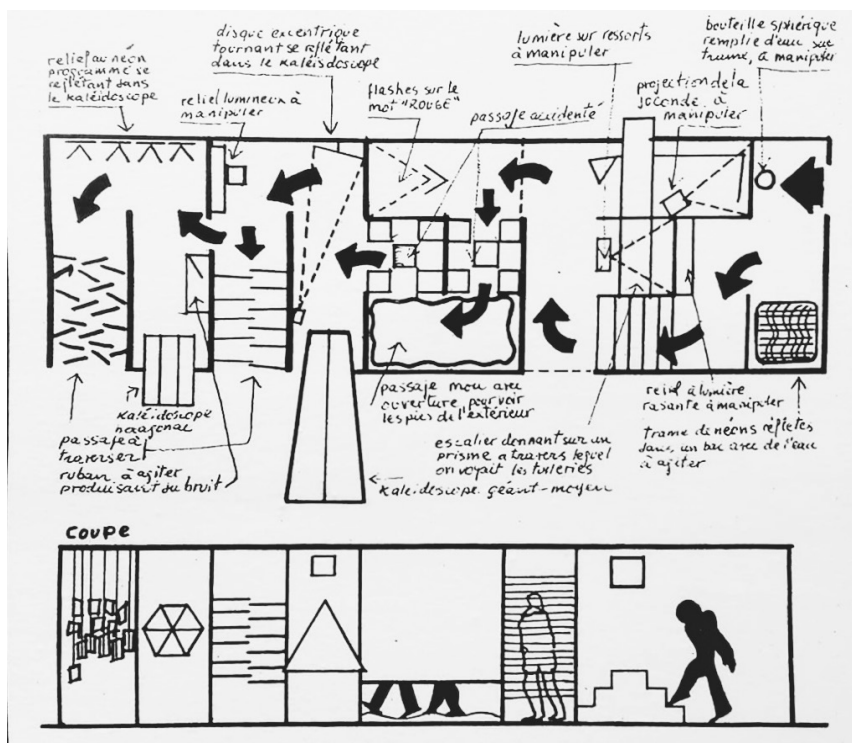 relief au néon
programmé se
reflétant dans
le kaléidoscope
disque excentrique
tournant se reflétant
dans le kaléidoscope
relief lumineux à
manipuler
flashes sur le
mot "ROUGE"
passage accidenté
lumière sur ressorts
à manipuler
projection de la
seconde à
manipuler
bouteille sphérique
remplie d'eau sur
trame, à manipuler
kaléidoscope
hexagonal
passage à
traverser
ruban à agiter
produisant du bruit
passage mou avec
ouverture pour voir
les pieds de l'extérieur
escalier donnant sur un
prisme à travers lequel
on voyait les tuileries
kaléidoscope géant-moyen
relief à lumière
rasante à manipuler
trame de néons reflétés
dans un bac avec de l'eau
à agiter
coupe